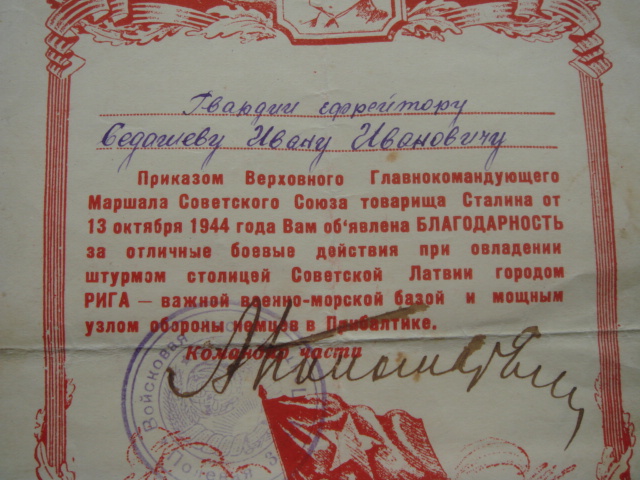 Гвардии ефрейтору
Седашеву Ивану Ивановичу
Приказом Верховного Главнокомандующего
Маршала Советского Союза товарища Сталина от
13 октября 1944 года Вам об'явлена БЛАГОДАРНОСТЬ
за отличные боевые действия при овладении
штурмом столицей Советской Латвии городом
РИГА — важной военно-морской базой и мощным
узлом обороны немцев в Прибалтике.
Командир части
Войсковая